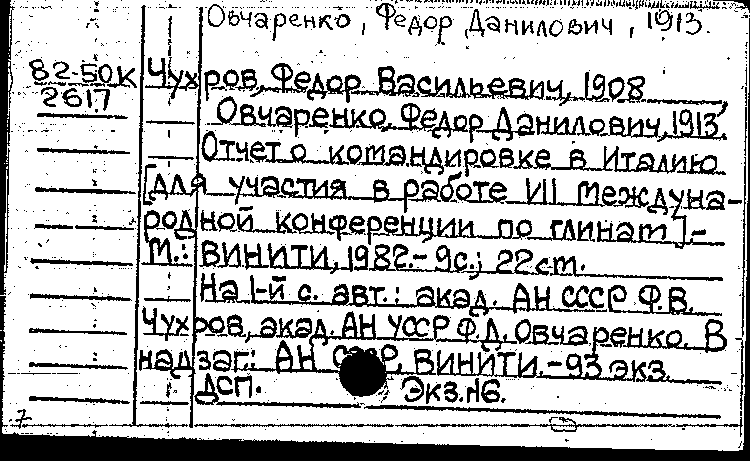 Овчаренко, Федор Данилович, 1913.
82-50К Чухров, Федор Васильевич, 1908,
2617 Овчаренко, Федор Данилович, 1913.
Отчет о командировке в Италию
[для участия в работе VII Междуна-
родной конференции по глинам].-
М.: ВИНИТИ, 1982.- 9с.; 22ст.
На 1-й с. авт.: акад. АН СССР Ф.В.
Чухров, акад. АН УССР Ф.Д. Овчаренко. В
надзаг.: АН СССР, ВИНИТИ.-93 экз.
ДСП. Экз.№6.
7